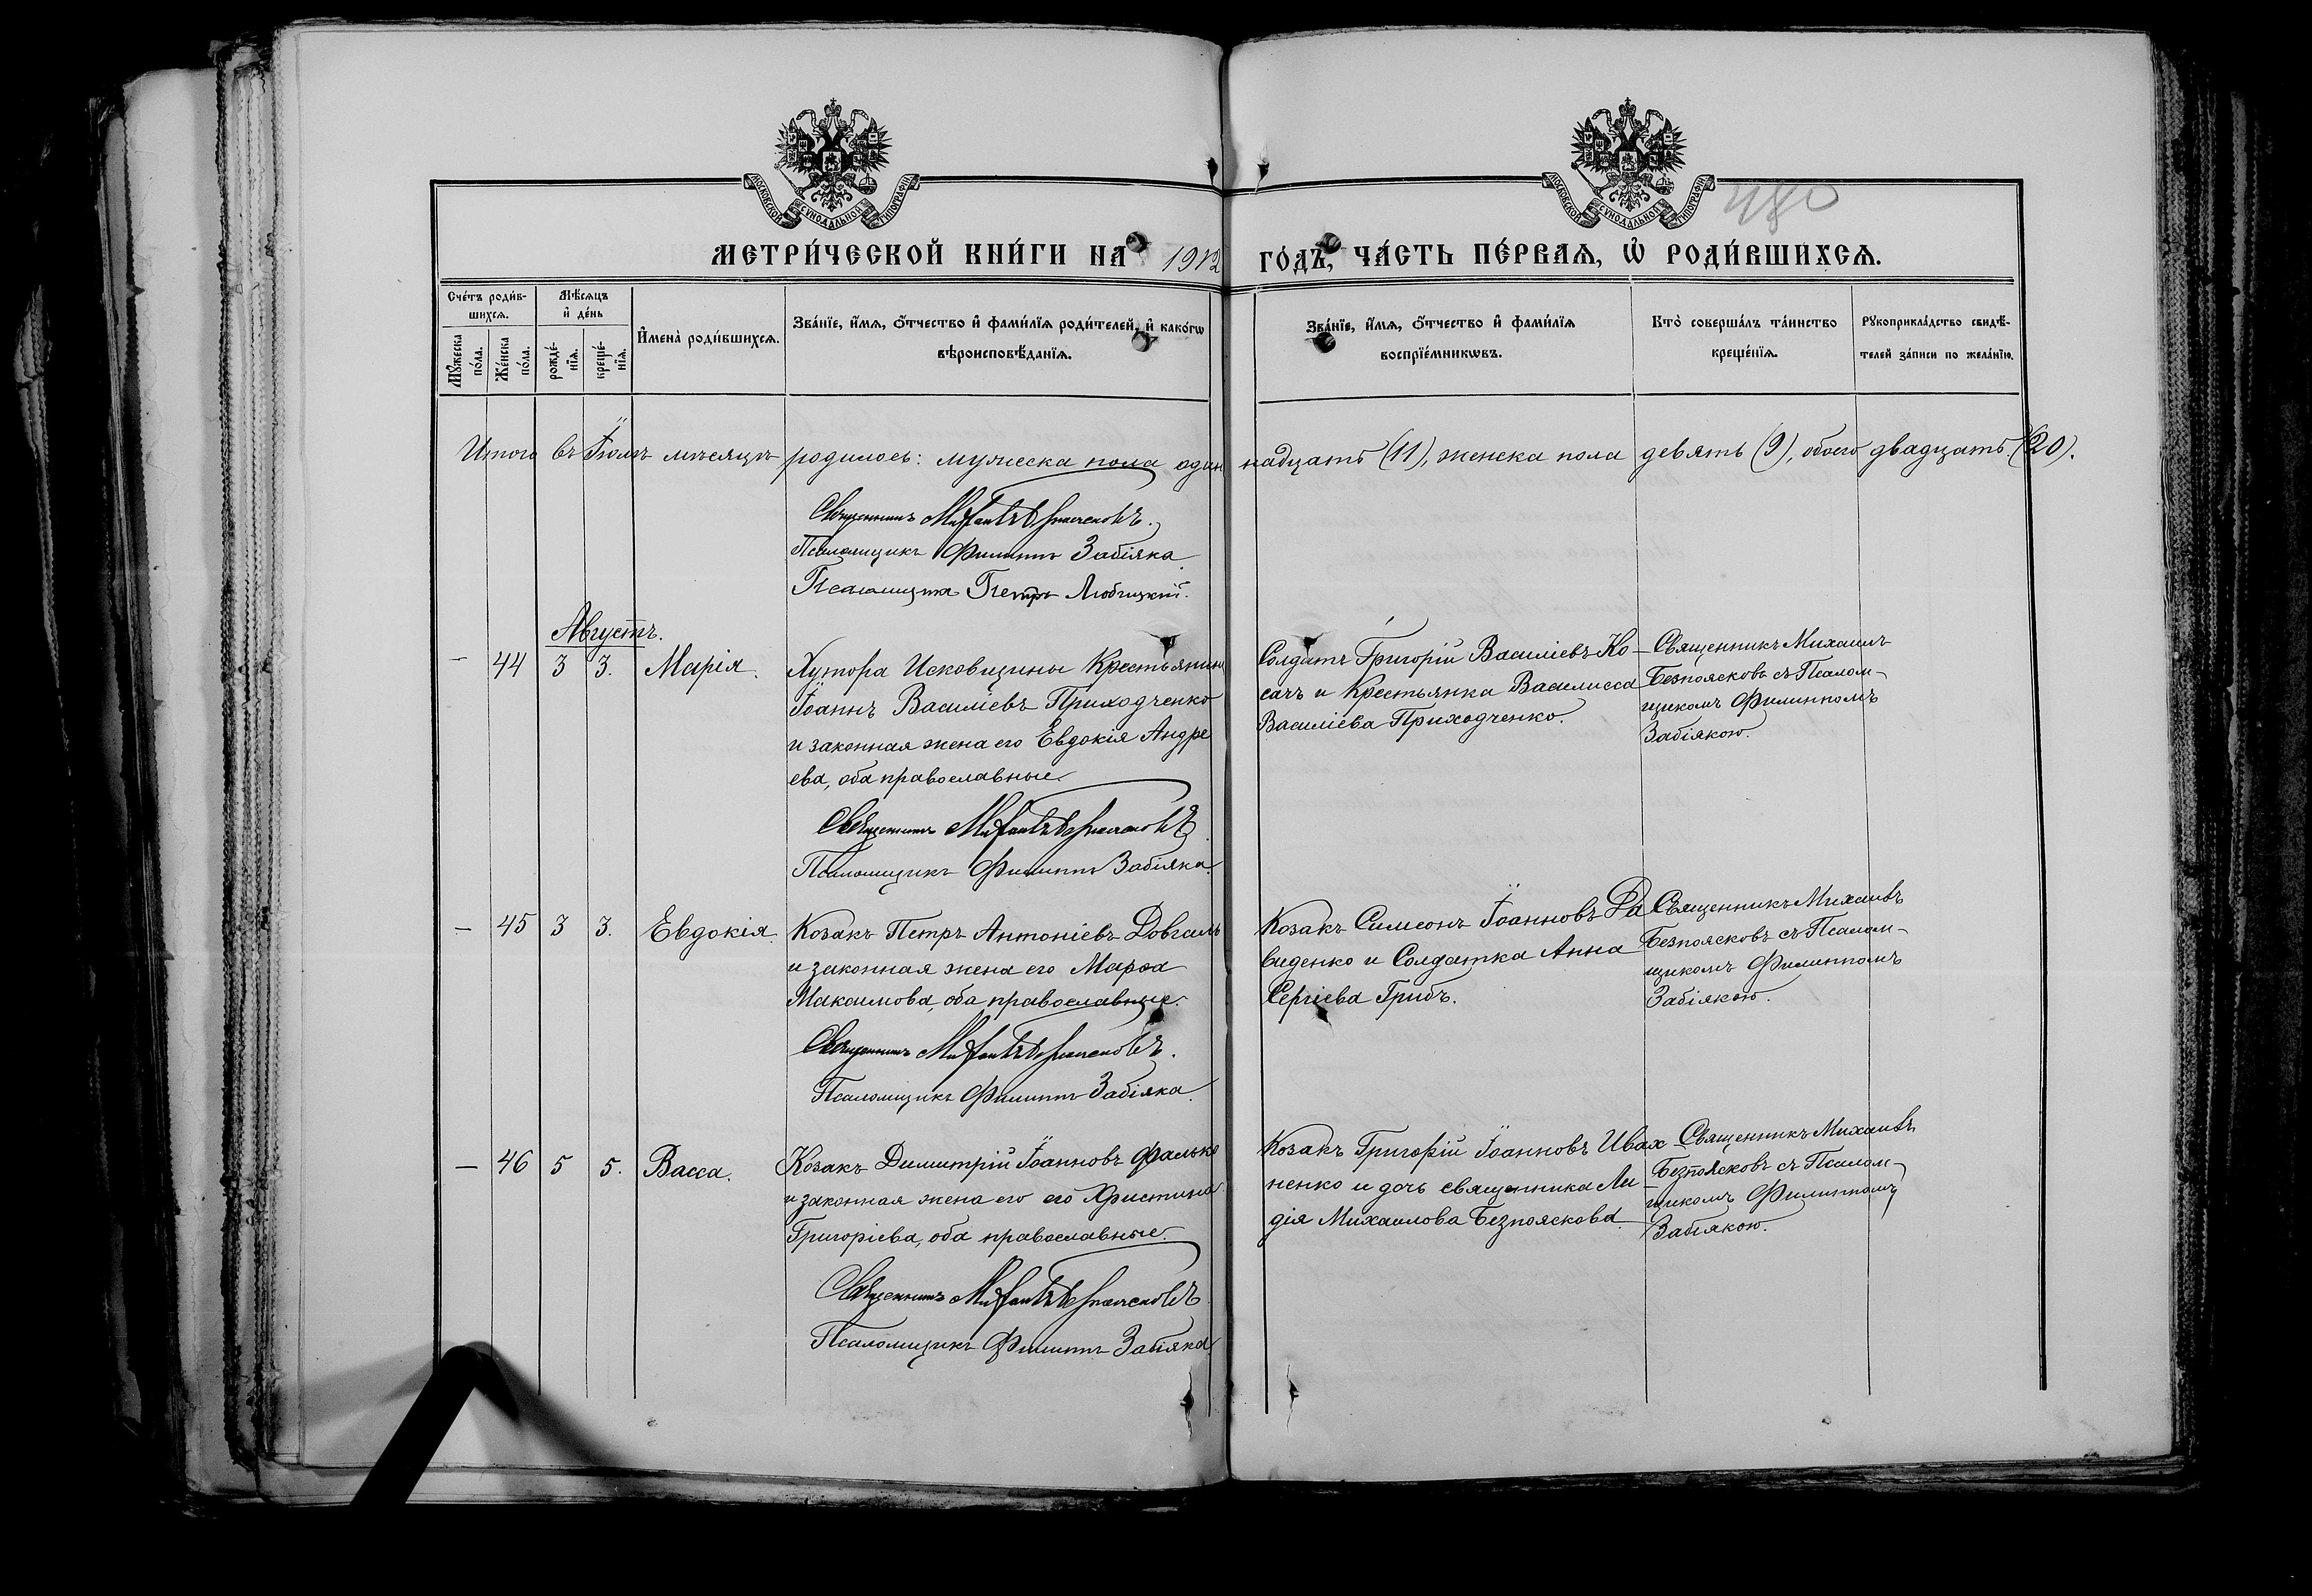 МОСКОВСКОЙ СУНОДАЛЬНОЙ ТИПОГРАФІИ
МОСКОВСКОЙ СУНОДАЛЬНОЙ ТИПОГРАФІИ
480
МЕТРИ́ЧЕСКОЙ КНИ́ГИ НА 1912 ГО́ДЪ, ЧА́СТЬ ПЕ́РВАѦ, Ѡ РОДИ́ВШИХСѦ.
Сче́тъ роди́в-
шихсѧ.
Мꙋ́жеска по́ла.
Же́нска по́ла.
Мѣ́сѧцъ
и҆ де́нь
рожде́-
нїѧ.
креще́-
нїѧ.
И҆мена̀ роди́вшихсѧ.
Зва́нїе, и҆́мѧ, ѻ҆́тчество и҆ фами́лїѧ роди́телей, и҆ како́гѡ
вѣроисповѣ́данїѧ.
Зва́нїе, и҆́мѧ, ѻ҆́тчество и҆ фами́лїѧ
воспрїе́мникѡвъ.
Кто̀ соверша́лъ та́инство
креще́нїѧ.
Рꙋкоприкла́дство свидѣ́-
телей за́писи по жела́нїю.
Итого въ Іюлѣ мѣсяцѣ родилось: мужеска пола один надцать (11), женска пола девять (9), обоего двадцать (20).
Священникъ Михаилъ Безпоясковъ.
Псаломщикъ Филиппъ Забіяка.
Псаломщикъ Петръ Любицкій.
Августъ.
— 44 3 3. Марія.
Хутора Исковщины Крестьянинъ
Іоаннъ Василіевъ Приходченко
и законная жена его Евдокія Андре
ева, оба православные.
Священникъ Михаилъ Безпоясковъ
Псаломщикъ Филиппъ Забіяка.
Солдатъ Григорій Василіевъ Ко-
сачъ и Крестьянка Василисса
Василіева Приходченко.
Священникъ Михаилъ
Безпоясковъ съ Псалом-
щикомъ Филиппомъ
Забіякою.
— 45 3 3. Евдокія.
Козакъ Петръ Антоніевъ Довгаль
и законная жена его Марѳа
Максимова, оба православные.
Священникъ Михаилъ Безпоясковъ.
Псаломщикъ Филиппъ Забіяка.
Козакъ Симеонъ Іоанновъ Да
виденко и Солдатка Анна
Сергіева Грибъ.
Священникъ Михаилъ
Безпоясковъ съ Псалом-
щикомъ Филиппомъ
Забіякою.
— 46 5 5. Васса.
Козакъ Димитрій Іоанновъ Фалько
и законная жена его его Христина
Григоріева, оба православные.
Священникъ Михаилъ Безпоясковъ
Псаломщикъ Филиппъ Забіяка.
Козакъ Григорій Іоанновъ Ивах
ненко и дочь священника Ли
дія Михаилова Безпояскова.
Священникъ Михаилъ
Безпоясковъ съ Псалом-
щикомъ Филиппомъ
Забіякою.